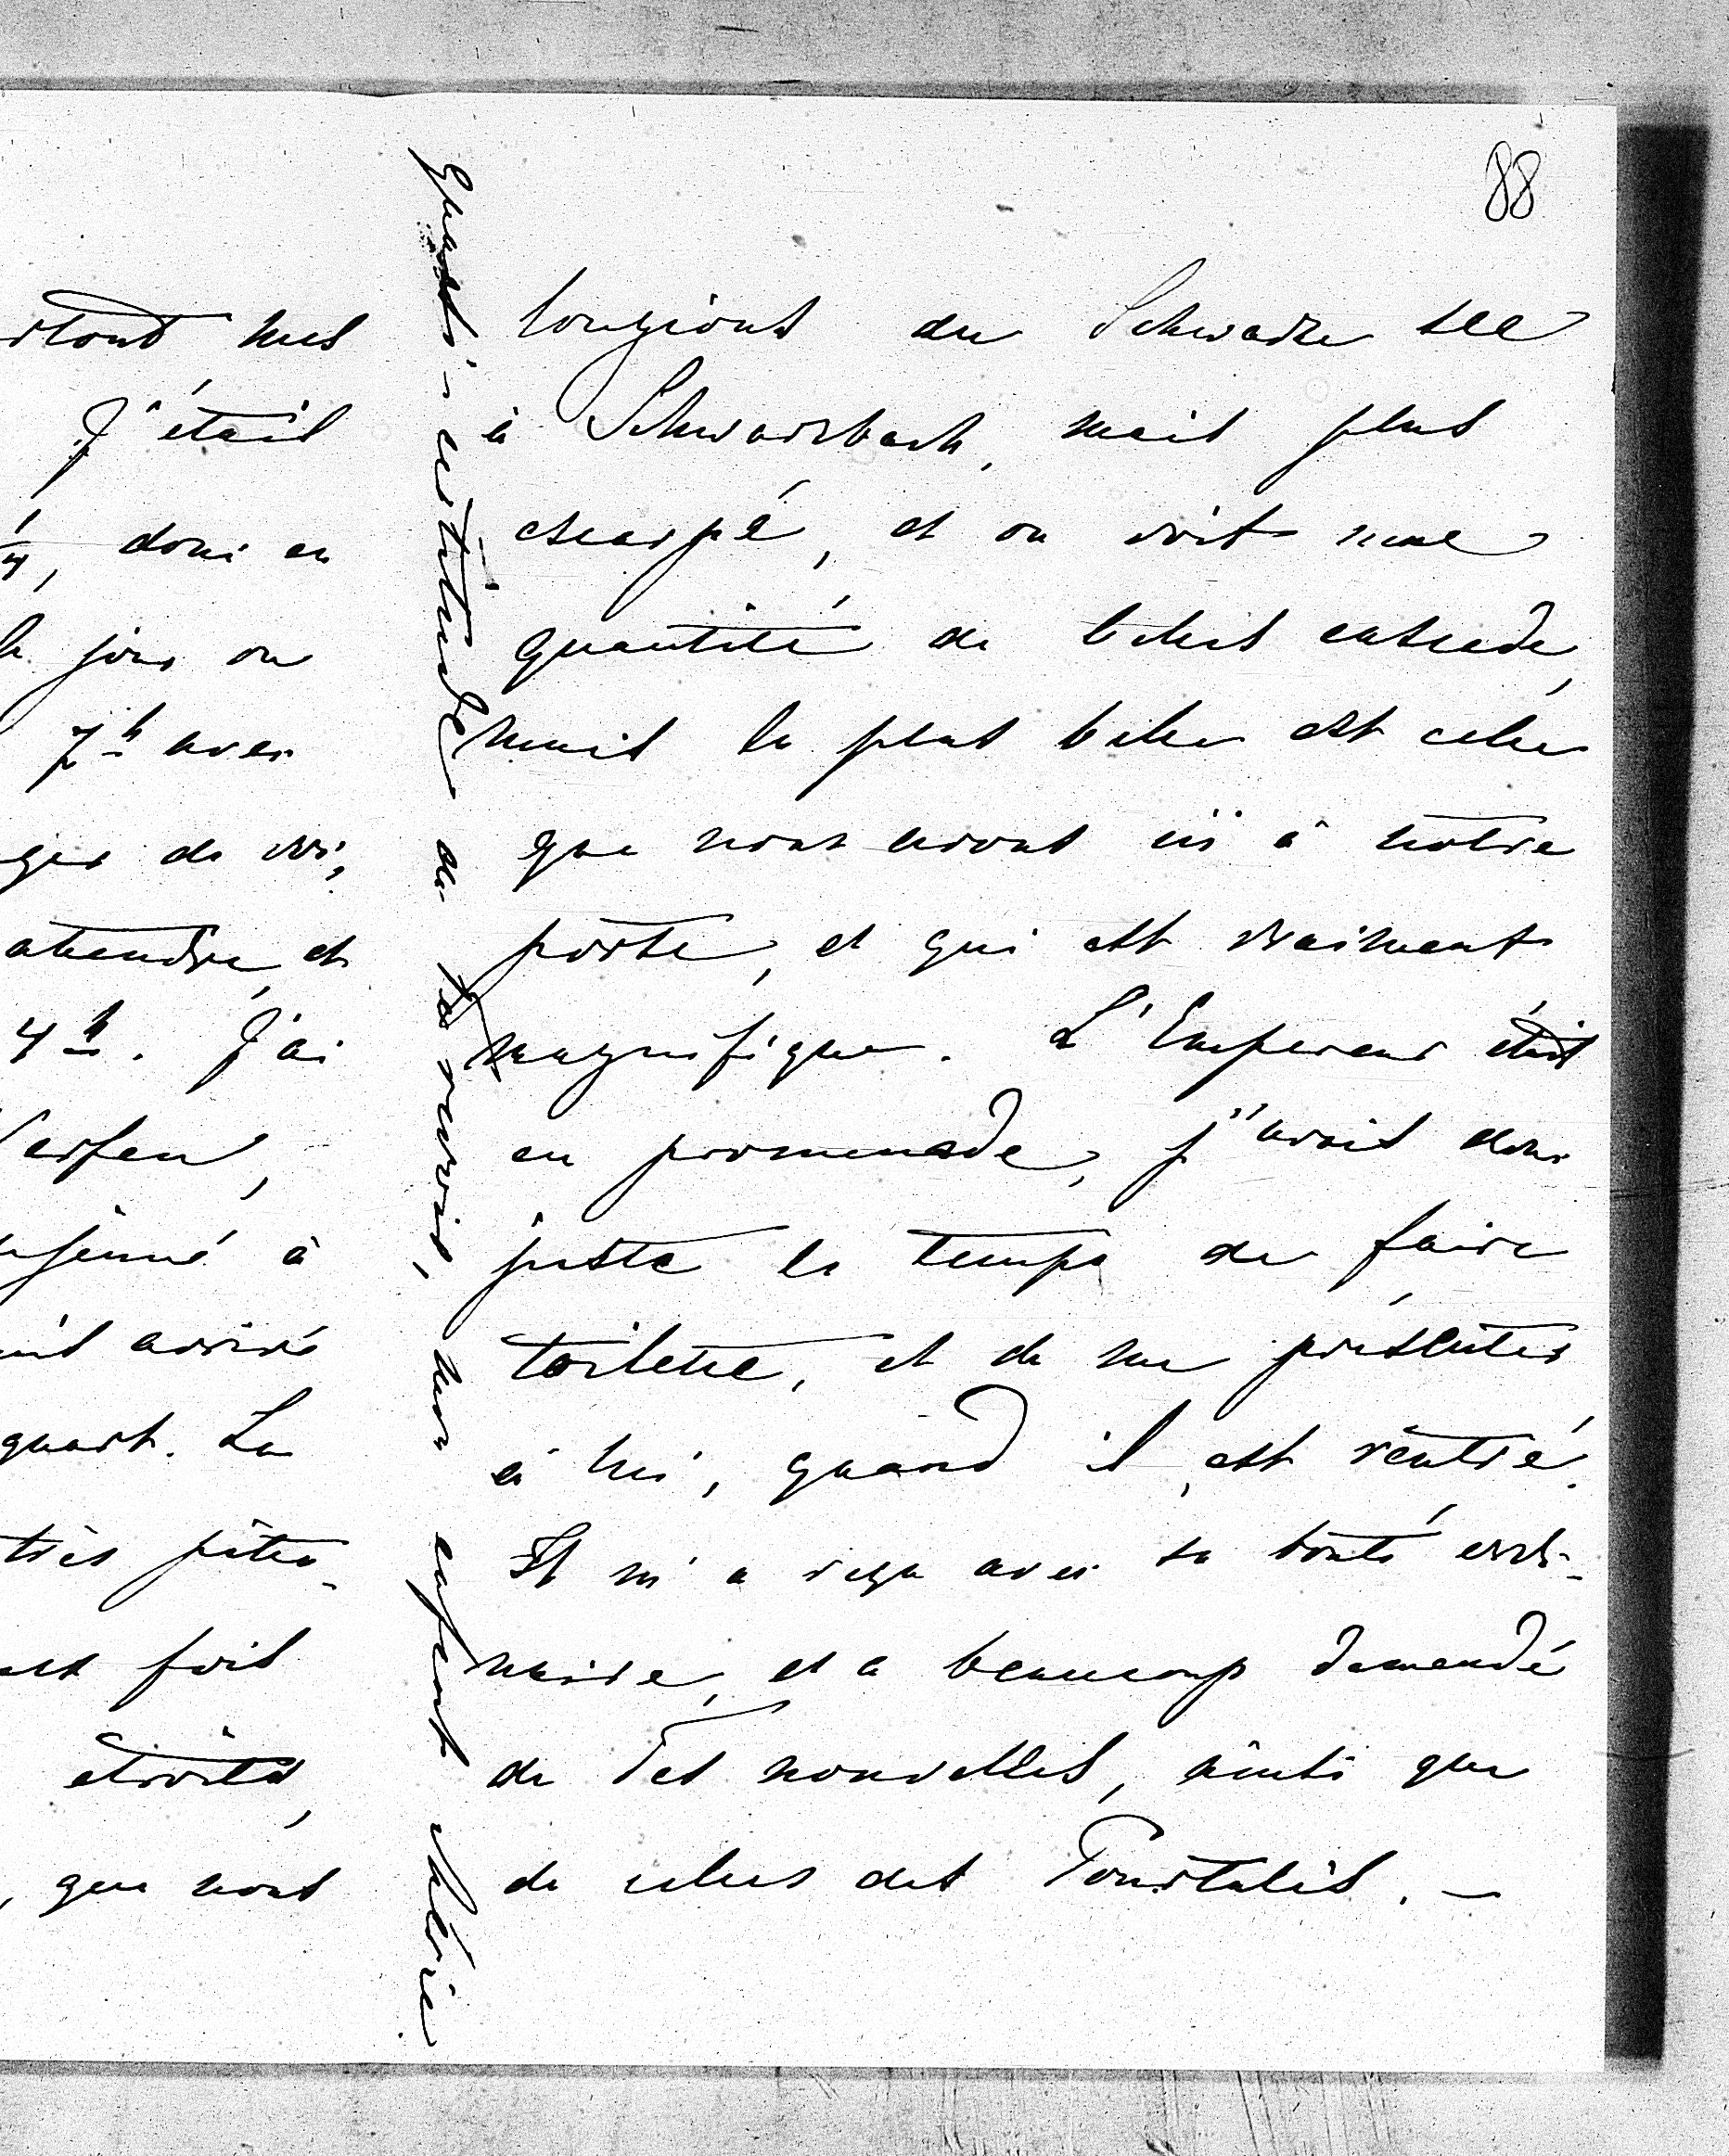 88
longions du Schwarze see
à Schwarzbach, mais plus
escarpé, et on voit une
quantité de belles cascade,
mais la plus belle est celle
que nous avons ici à notre
porte, et qui est vraiment
magnifique. L'Empereur était
en promenade, j'avais donc
juste le temps de faire
toilette, et de me présenter
à lui, quand il est rentré.
Il m'a reçu avec sa bonté ordi-
naire, et a beaucoup demandé
de Tes nouvelles, ainsi que
de celles des Pourtalès. —
quasi-certitude de Te revoir, mon enfant chérie
nus
J'étais
donc en
jour on
7h avec
de voi,
attendre et
4h. J'ai
erfen,
à
arrivé
quart. La
très pitto-
fois
étroites,
que nous